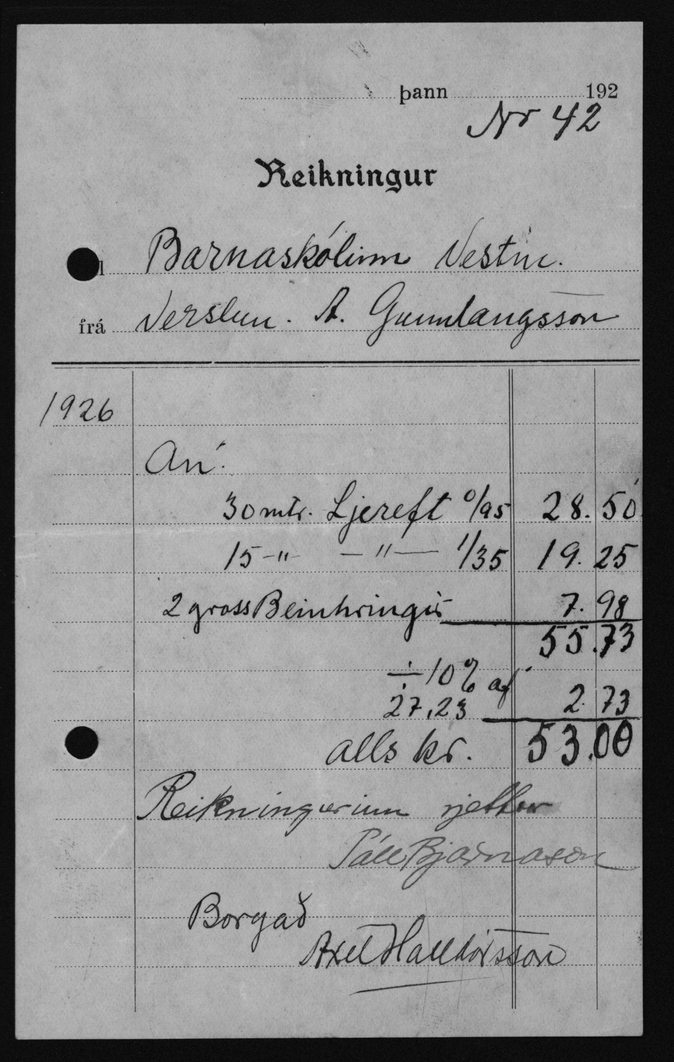 þann 192
Nr 42
Reikningur
l Barnaskólinn Vestm.
frá Verslun. A. Gunnlaugsson
1926
An.
30 mtr. Ljereft 0/95 28.50
15 -"- -"- 1/35 19.25
2 gross Beinhringir 7.98
55.73
÷ 10% af
27.23 2.73
alls kr. 53.00
Reikningurinn rjettur
Páll Bjarnason
Borgað
Axel Halldórsson